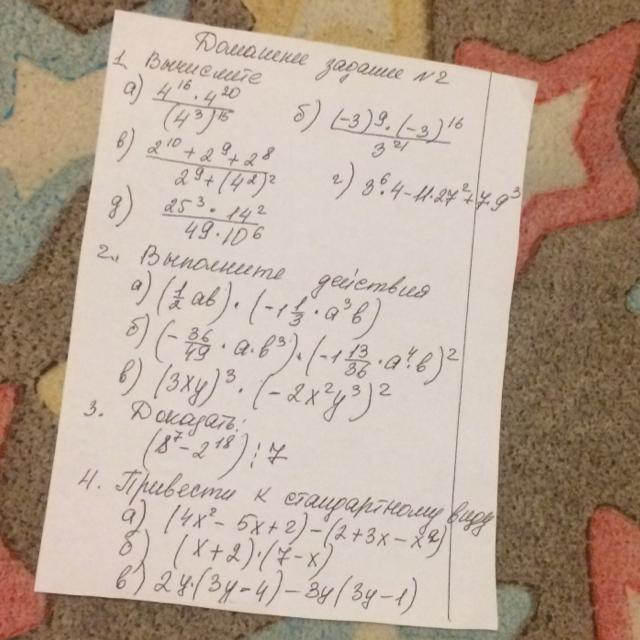 Домашнее задание №2
1. Вычислите
а) (4^16 · 4^20)/(4^3)^15 б) ((-3)^9 · (-3)^16)/3^21
в) (2^10 + 2^9 + 2^8)/(2^9 + (4^2)^2) г) 3^6 · 4 - 11 · 27^2 + 7 · 9^3
д) (25^3 · 14^2)/(49 · 10^6)
2. Выполните действия
а) (1/2 ab) · (-1 1/3 · a^3b)
б) (-36/49 · a · b^3) · (-1 13/36 · a^4 · b)^2
в) (3xy)^3 · (-2x^2y^3)^2
3. Доказать:
(8^7 - 2^18) ⋮ 7
4. Привести к стандартному виду
а) (4x^2 - 5x + 2) - (2 + 3x - x^2)
б) (x + 2) · (7 - x)
в) 2y · (3y - 4) - 3y (3y - 1)